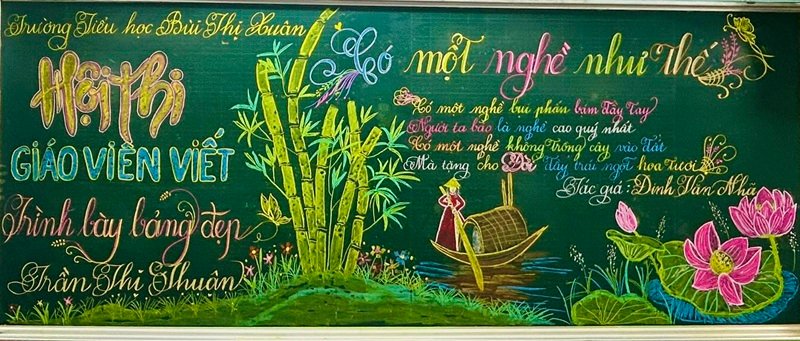 Trường Tiểu học Bùi Thị Xuân
Hội thi
GIÁO VIÊN VIẾT
Trình bày bảng đẹp
Trần Thị Thuận
Có một nghề như thế
Có một nghề bụi phấn bám đầy tay
Người ta bảo là nghề cao quý nhất
Có một nghề không trồng cây vào đất
Mà tặng cho Đời đầy trái ngọt hoa tươi
Tác giả : Đinh Văn Nhã